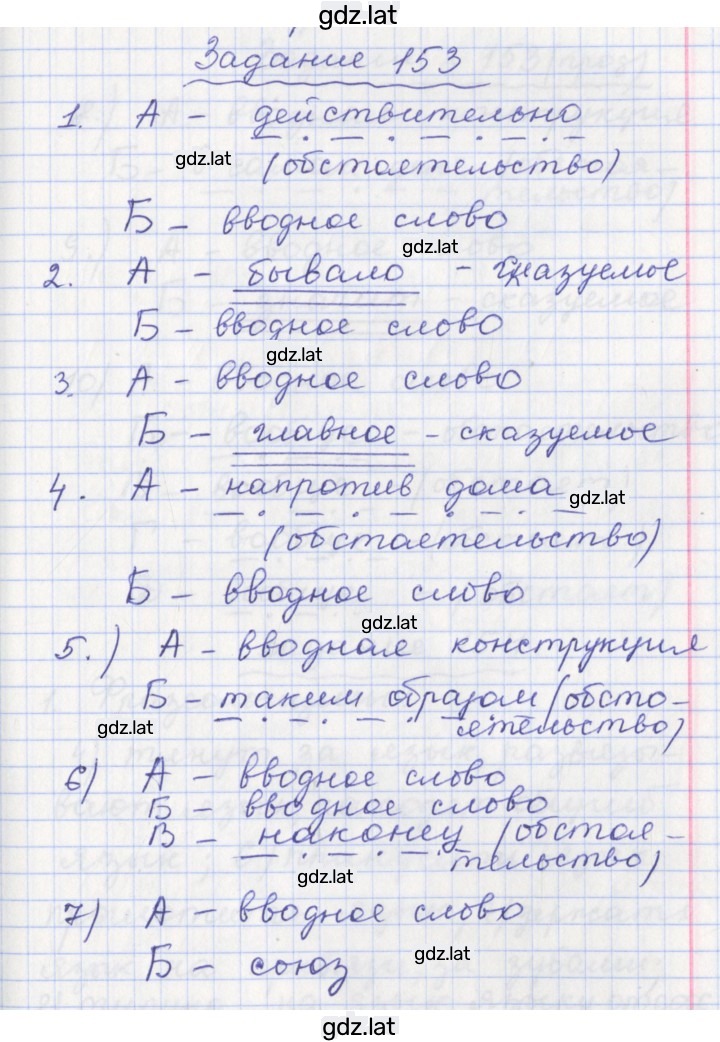 gdz.lat
Задание 153
1. А - действительно
gdz.lat (обстоятельство)
Б - вводное слово
gdz.lat
2. А - бывало - сказуемое
Б - вводное слово
gdz.lat
3. А - вводное слово
Б - главное - сказуемое
4. А - напротив дома gdz.lat
(обстоятельство)
Б - вводное слово
gdz.lat
5.) А - вводная конструкция
Б - таким образом (обсто-
gdz.lat ятельство)
6) А - вводное слово
Б - вводное слово
В - наконец (обстоя-
тельство)
gdz.lat
7) А - вводное слово
Б - союз gdz.lat
gdz.lat